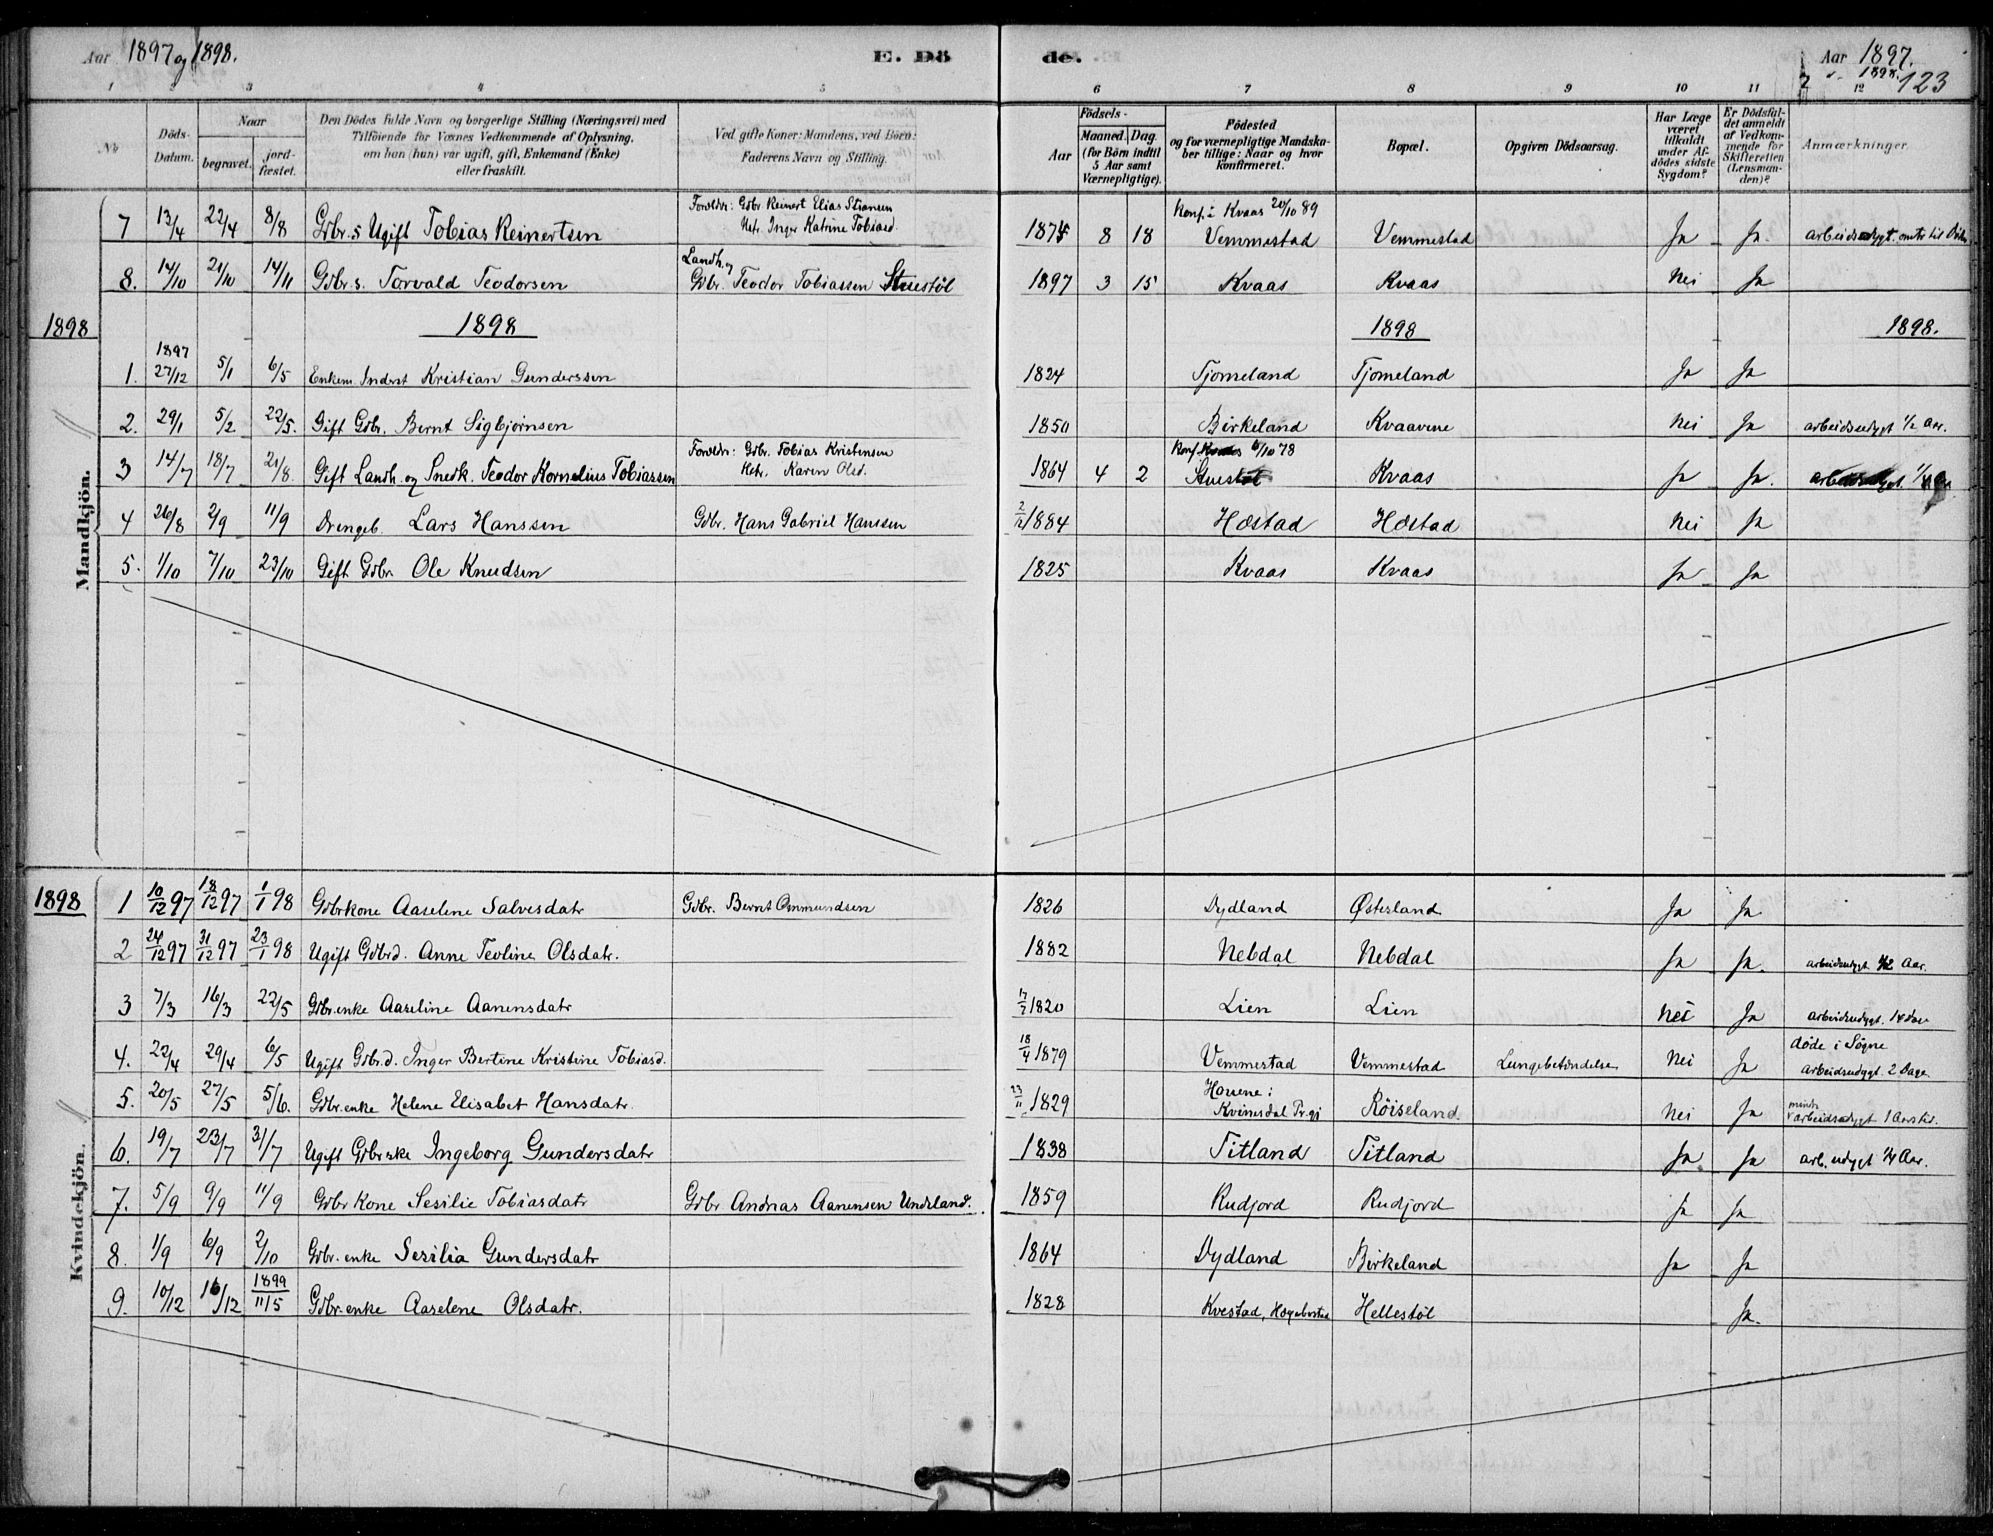 Aar 1897 og 1898. E. Dö de. Aar 1897.
1898. 123
1 2 3 4 5 6 7 8 9 10 11 12
No Döds-Datum. Naar begravet. jord-fæstet. Den Dödes fulde Navn og borgerlige Stilling (Næringsvei) med Tilföiende för Voxnes Vedkommende af Oplysning, om han (hun) var ugift, gift, Enkemand (Enke) eller fraskilt. Ved gifte Koner: Mandens, ved Börn: Faderens Navn og Stilling.
Födsels- Aar Maaned. Dag. (for Börn indtil 5 Aar samt Værnepligtige). Födested og for værnepligtige Mandskaber tillige: Naar og hvor konfirmeret. Bopæl. Opgiven Dödsaarsag. Har Læge været tilkaldt under Afdödes sidste Sygdom? Er Dödsfaldet anmeldt af Vedkommende for Skifteretten (Lensmanden)? Anmærkninger.
Mandkjön.
7 13/4 22/4 8/8 Gdbr.s Ugift Tobias Reinertsen Forældr: Gdbr Reinert Elias Stiansen Inger Katrine Tobiasd. 1875 8 18 Konf. i Kvaas 20/10 89 Vemmestad Vemmestad Ja Ja. arbeidsudygt.
8. 14/10 21/10 14/11 Gdbr.s. Torvald Teodorsen Landh. og Gdbr. Teodor Tobiassen Stuestöl 1897 3 15 Kvaas Kvaas Nei Ja
1898 1898 1898 1898.
1. 1897 27/12 5/1 6/5 Enkem. Inderst Kristian Gunderssen 1824 Tjomeland Tjomeland Ja Ja
2. 29/1 5/2 22/5. Gift Gdbr. Bernt Sigbjörnsen 1850 Birkeland Kvaavene Nei Ja arbeidsudygt 1/2 Aar.
3 14/7 18/7 21/8. Gift Landh. og Snedk. Teodor Kornelius Tobiassen Forældr: Gdbr. Tobias Kristensen Karen Olsd. 1864 4 2 Konf. Kvaas 6/10 78 Stuestöl Kvaas Ja Ja. arbeidsudygt.
4 26/8 2/9 11/9 Drengeb. Lars Hanssen Gdbr. Hans Gabriel Hanssen 2/12 1884 Hæstad Hæstad Nei Ja
5. 1/10 7/10 23/10 Gift Gdbr Ole Knudsen 1825 Kvaas Kvaas Ja Ja
1898
Kvindekjön.
1 10/12 97 18/12 97 1/1 98 Gdbrkone Aaselene Salvesdatr Gdbr. Bernt Ommundsen 1826 Dydland Østerland Ja Ja
2 24/12 97 31/12 97 23/1 98 Ugift Gdbrd. Anne Teoline Olsdatr. 1882 Nebdal Nebdal Ja Ja. arbeidsudygt 1/2 Aar.
3 7/3 16/3 22/5 Gdbr.enke Aaseline Aanensdatr 1820 Lien Lien Nei Ja arbeidsudygt.
4. 22/4 29/4 6/5 Ugift Gdbr.d. Inger Bertine Kristine Tobiasd. 18/4 1879 Vemmestad Vemmestad Lungebetændelse Nei Ja döde i Søgne arbeidsudygt. 2 Dage
5. 20/5 27/5 5/6. Gdbr.enke Helene Elisabet Hansdatr. 23/11 1829 Kvinesdal Pr.gj Röiseland. Nei Ja arbeidsudygt
6. 19/7 23/7 31/7 Ugift Gdbr.ske Ingeborg Gundersdatr 1838 Titland Titland Ja Ja arb. udygt 1/4 Aar.
7. 5/9 9/9 11/9 Gdbr Kone Sesilie Tobiasdatr Gdbr Andrias Aanensen Undeland. 1859 Rudjord Rudjord Ja Ja
8. 1/9 6/9 2/10 Gdbr. enke Sesilia Gundersdatr 1864 Dydland Birkeland Ja Ja
9. 10/12 16/12 1899 11/5 Gdbr.enke Aaselene Olsdatr. 1828 Kvestad, Hægebostad Hellestöl Ja.